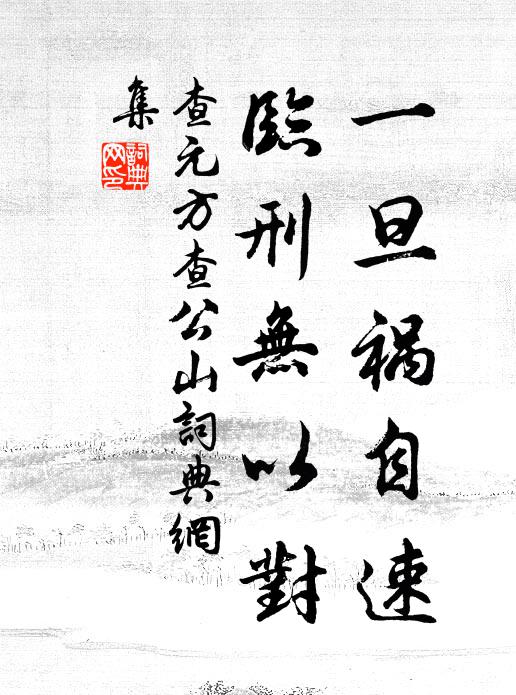 一旦祸自速
臨刑無以對
查元方查公山詞典網
集
詞典
网印